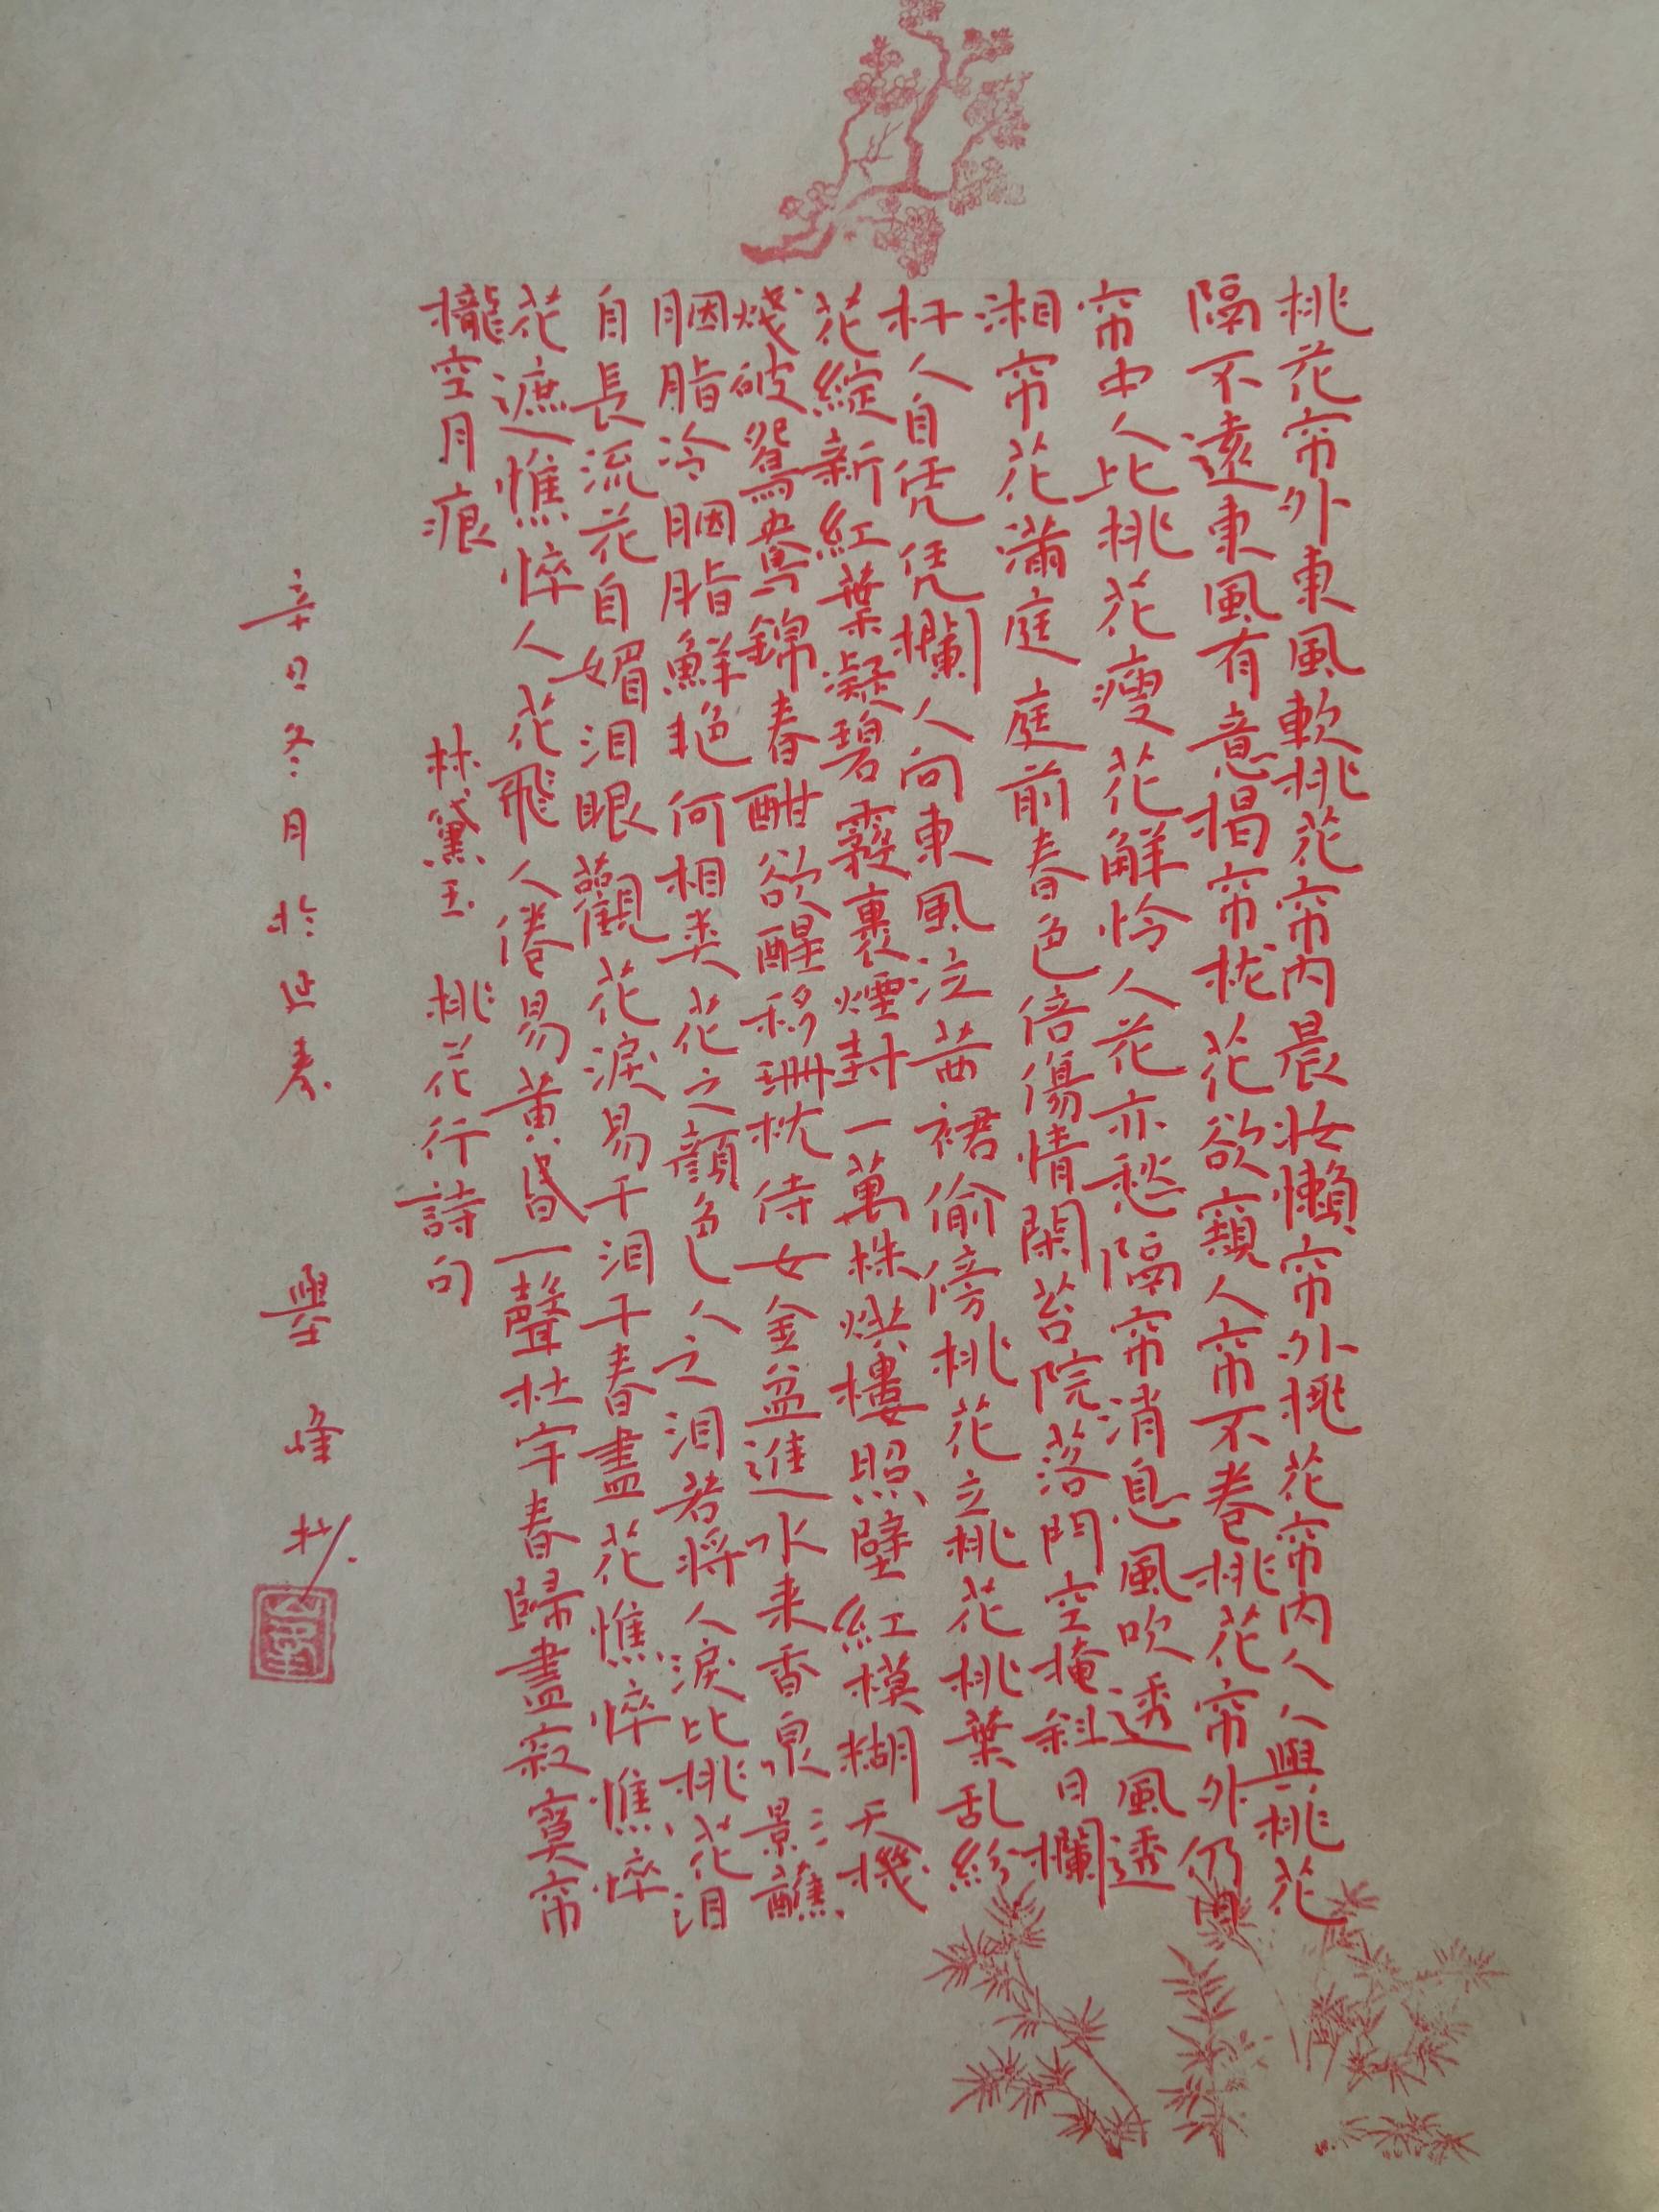 桃花帘外東風軟桃花帘内晨妝懶帘外桃花帘内人人與桃花
隔不遠東風有意揭帘栊花欲窺人帘不卷桃花帘外仍開
帘中人比桃花瘦花解怜人花亦愁隔帘消息風吹透風透
湘帘花滿庭庭前春色倍傷情閑苔院落門空掩斜日欄
杆人自凭凭欄人向東風泣茜裙偷傍桃花立桃花桃葉乱紛
花綻新紅葉凝碧霧裹煙封一萬株烘樓照壁紅模糊天機
燒破鴛鴦錦春酣欲醒移珊枕侍女金盆進水来香泉影蘸
胭脂冷胭脂鮮艳何相类花之顔色人之泪若將人淚比桃花泪
自長流花自媚泪眼觀花淚易干泪干春盡花憔悴憔悴
花遮憔悴人花飛人倦易黄昏一聲杜宇春歸盡寂寞帘
櫳空月痕
林黛玉 桃花行詩句
辛丑冬月於 峰抄